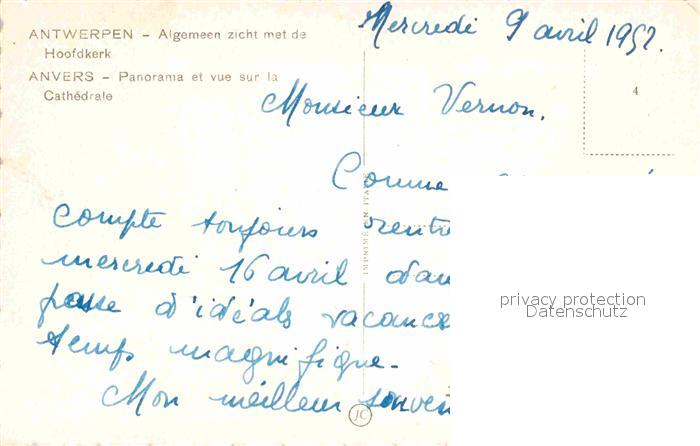 ANTWERPEN – Algemeen zicht met de
Hoofdkerk
ANVERS – Panorama et vue sur la
Cathédrale
Mercredi 9 avril 1952.
4
Monsieur Vernon.
Comme
compte toujours
mercredi 16 avril
passe d'idéals
temps magnifique.
Mon meilleur
IMPRIMÉ EN ITALIE
JC
privacy protection
Datenschutz